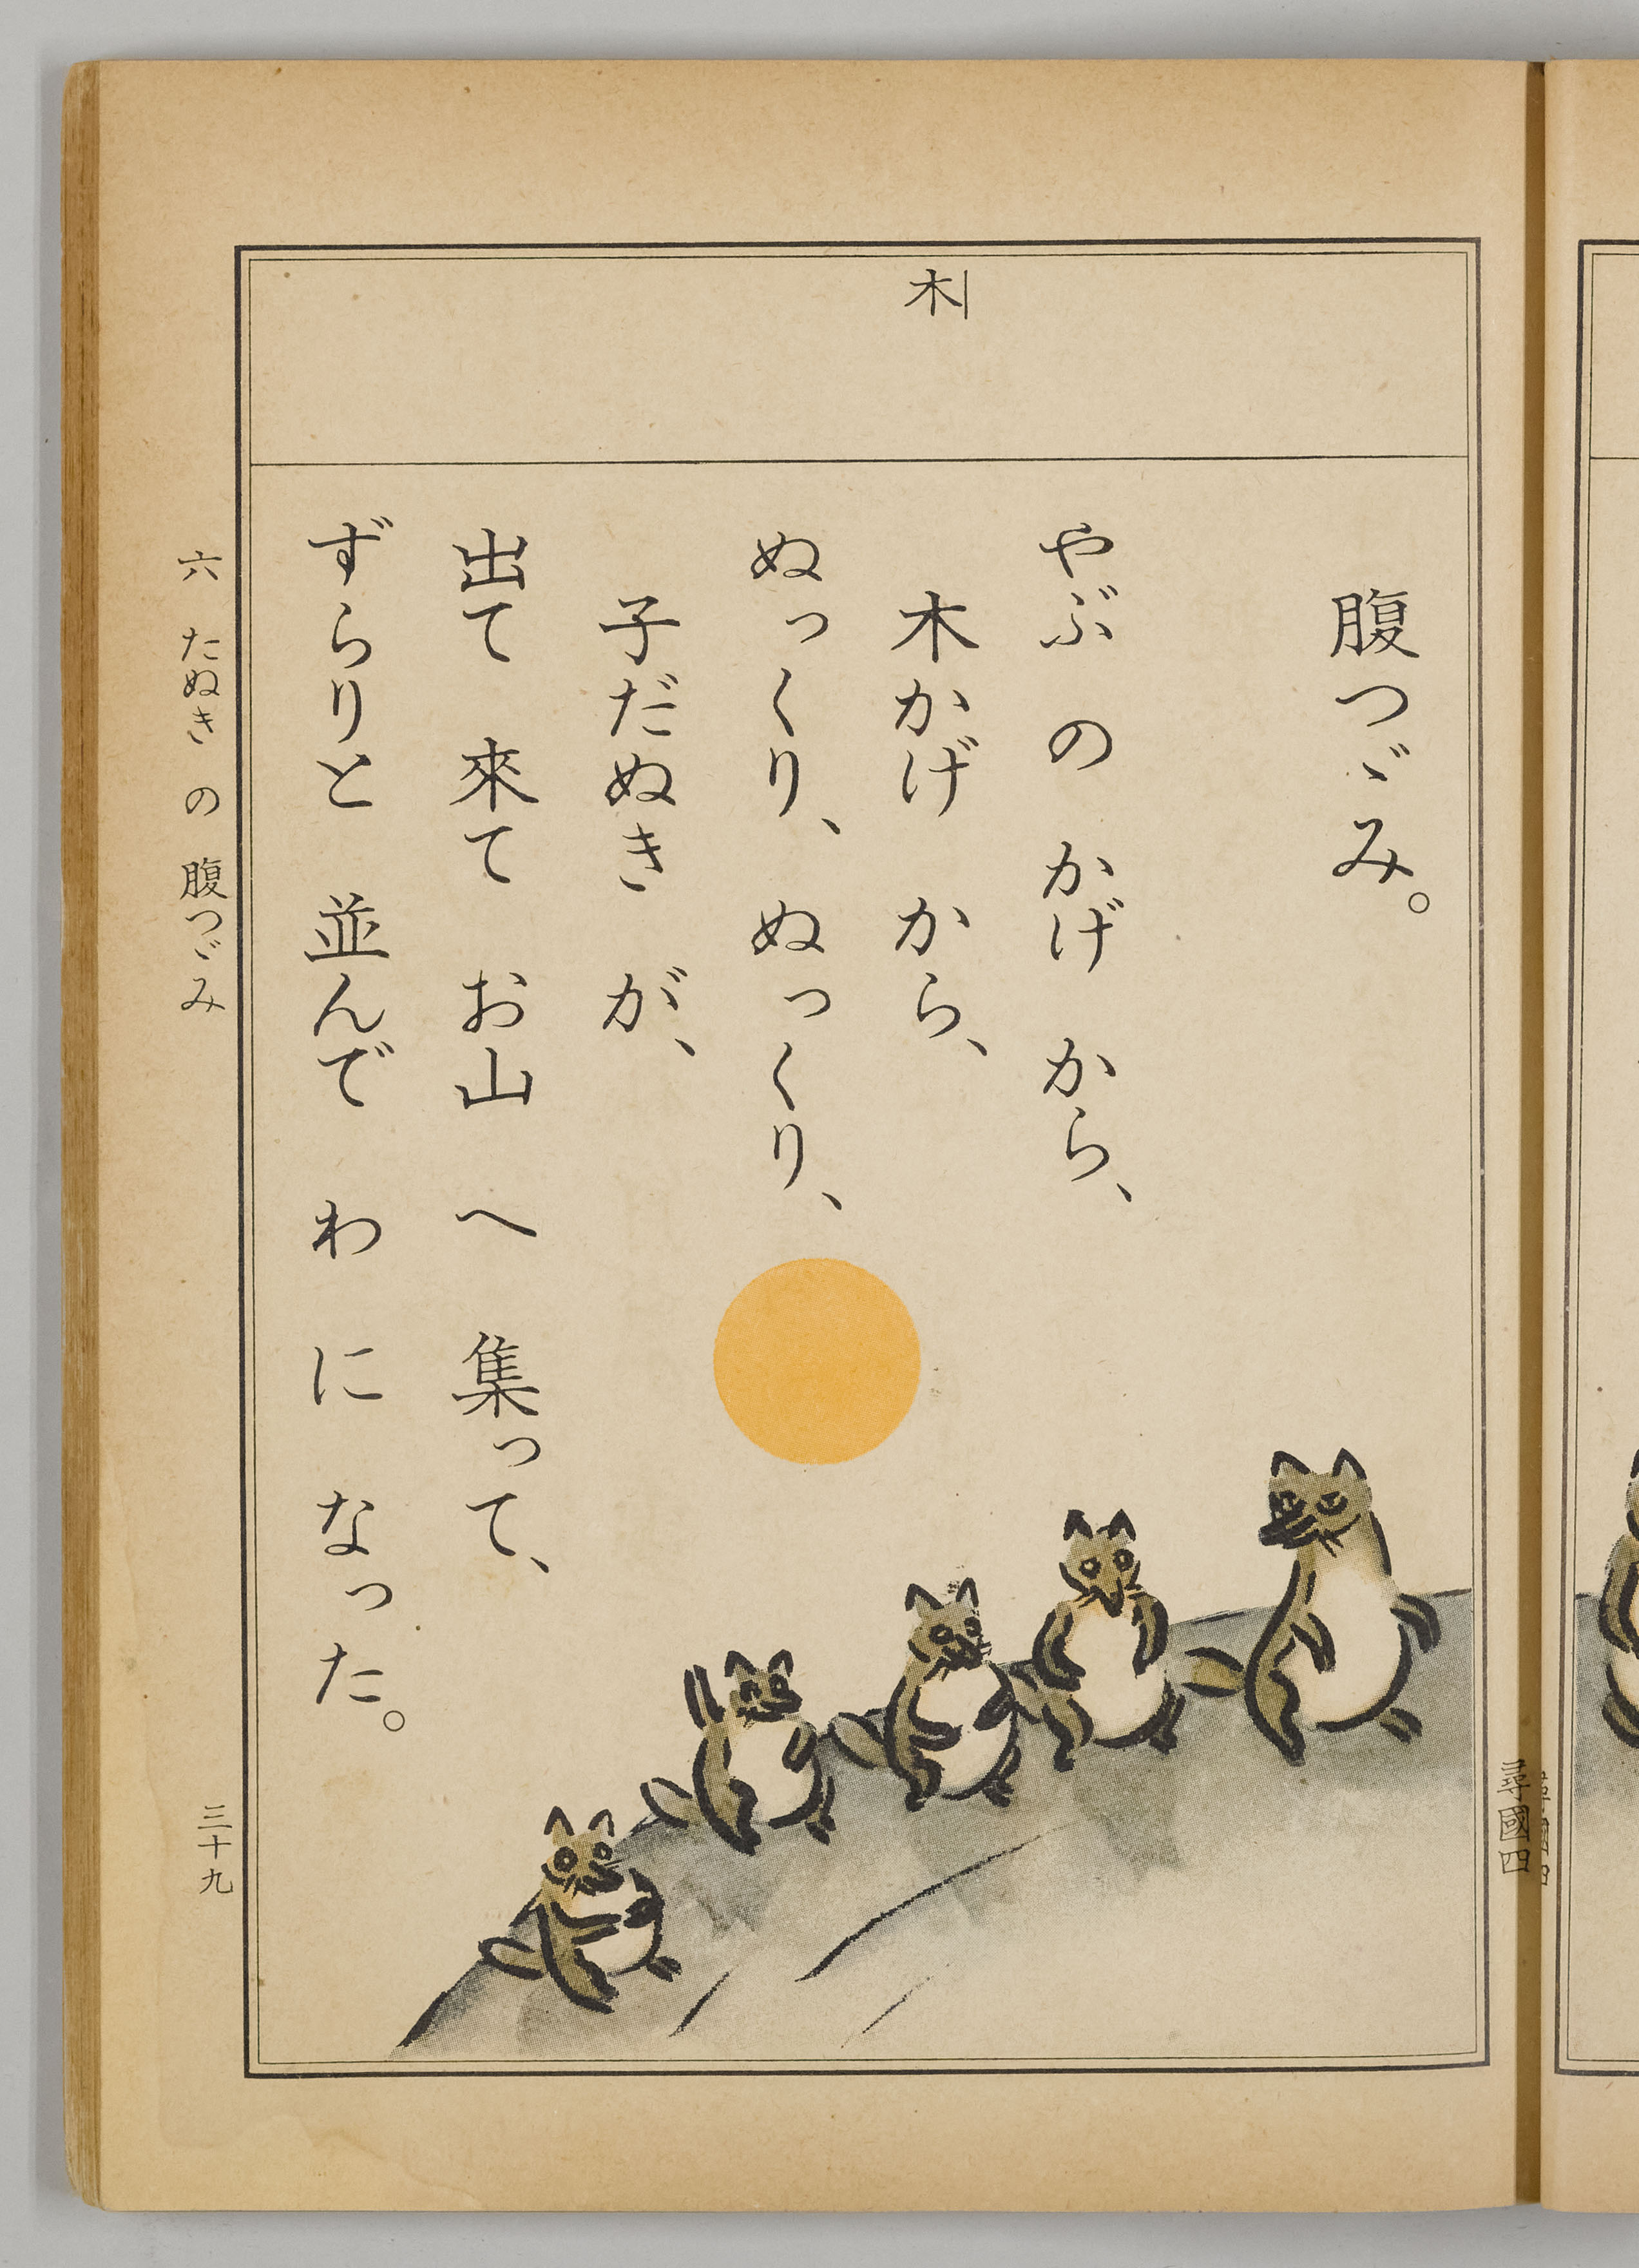 木
腹つゞみ。
やぶ の かげ から、
木かげ から、
ぬっくり、ぬっくり、
子だぬき が、
出て 來て お山 へ 集って、
ずらりと 並んで わ に なった。
六 たぬき の 腹つゞみ
三十九
尋國四